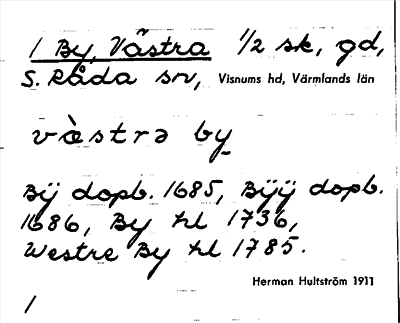 1 By, Västra 1/2 sk, gd,
S. Råda sn, Visnums hd, Värmlands län
vàstrə by
Bÿ dopb. 1685, Bÿÿ dopb.
1686, By kl 1736,
Westre By kl 1785.
Herman Hultström 1911
1